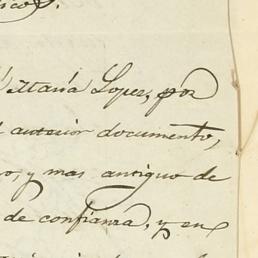 María Lopez, por
anterior documento,
o, y mas antiguo de
de confianza, y en